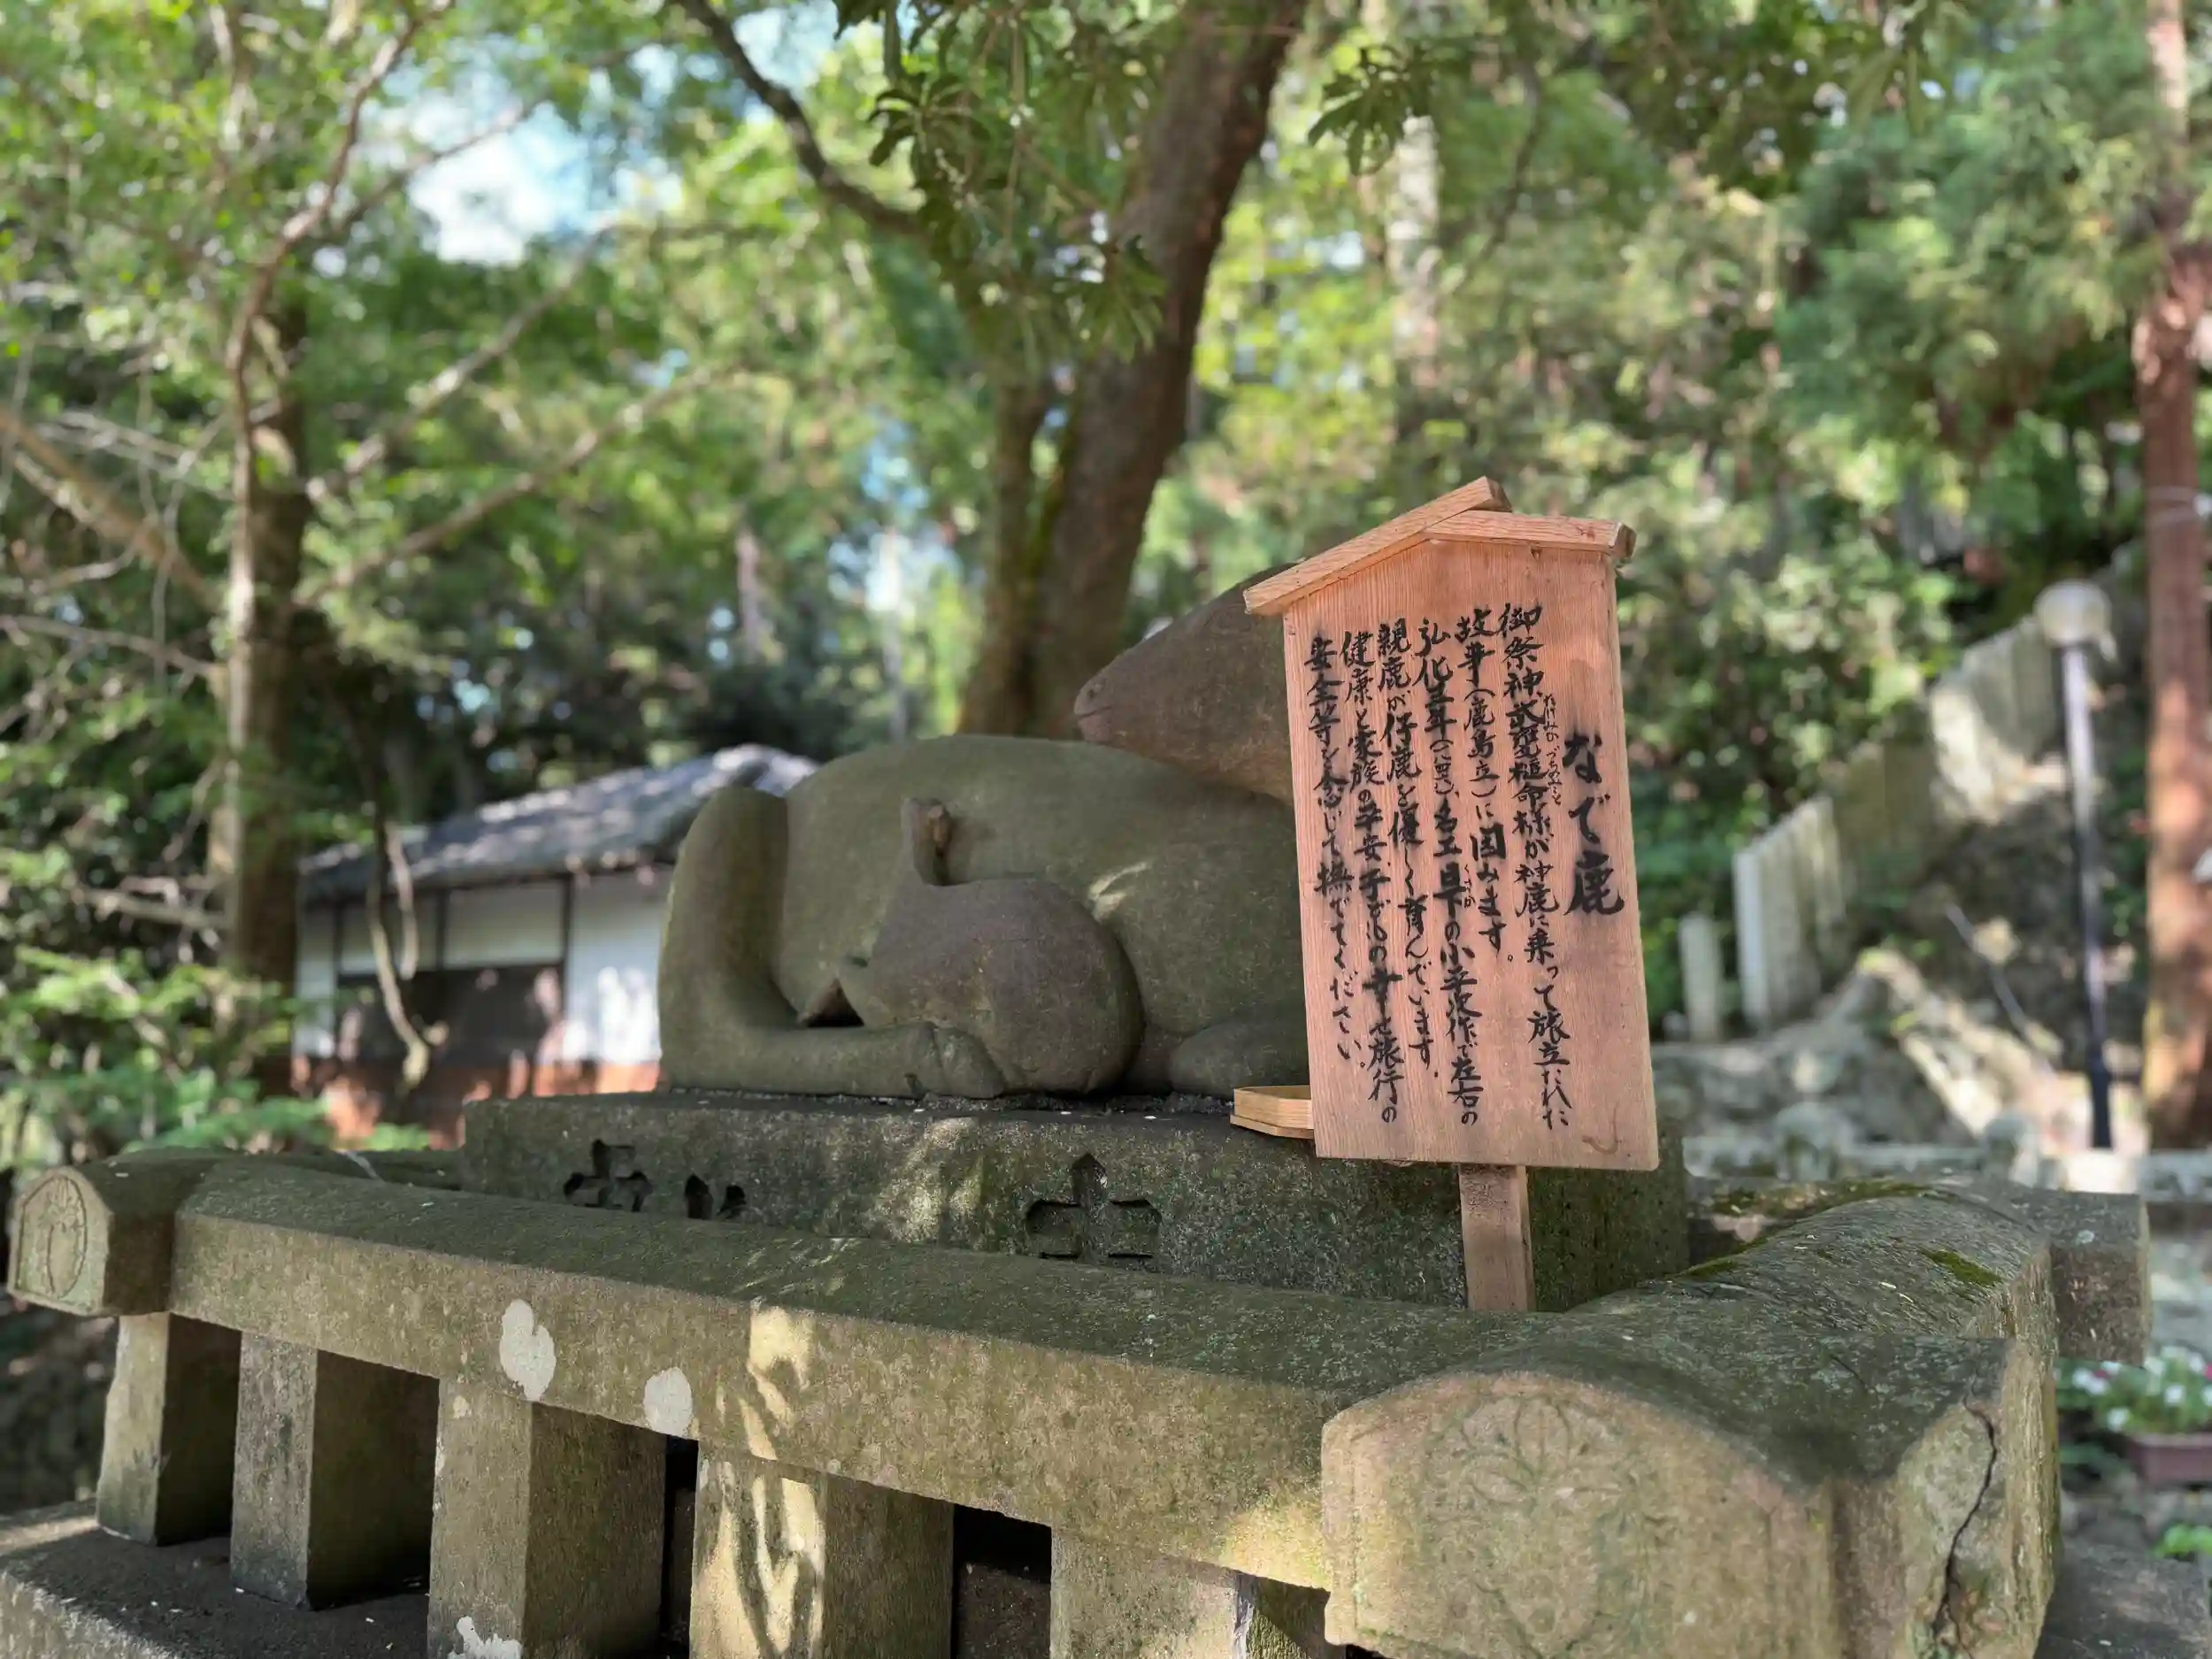 なで鹿
御祭神武甕槌命様が神鹿に乗って旅立たれた
たけみかづちのみこと
故事(鹿島立)に因みます。
弘化三年(一八四六)、名工日下の小平次作で左右の
くさか
親鹿が仔鹿を優しく育んでいます。
健康と家族の平安、子どもの幸せ、旅行の
安全等を念じて撫でてください。